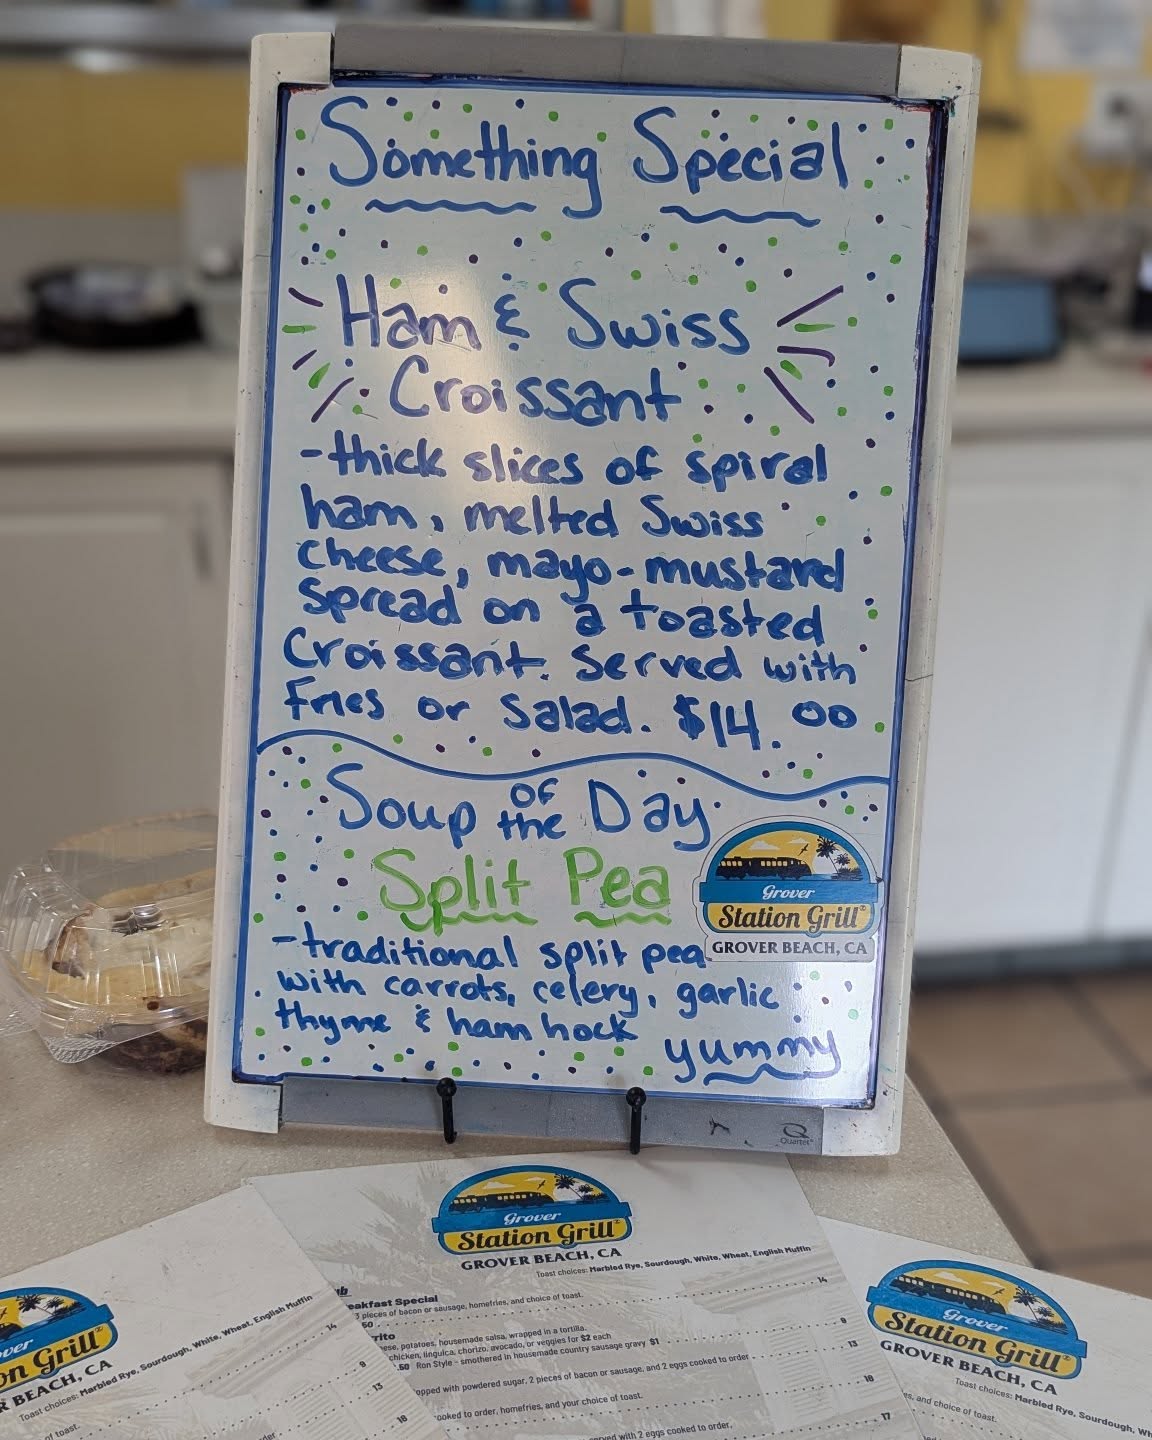 Something Special
Ham & Swiss
Croissant
-thick slices of spiral
ham, melted Swiss
cheese, mayo-mustard
spread on a toasted
Croissant. Served with
Fries or Salad. $14.00
Soup of the Day
Split Pea
-traditional split pea
with carrots, celery, garlic
thyme & ham hock
yummy
Grover
Station Grill
GROVER BEACH, CA
Quartet
Grover
Station Grill
GROVER BEACH, CA
Toast choices: Marbled Rye, Sourdough, White, Wheat, English Muffin
eakfast Special 14
3 pieces of bacon or sausage, homefries, and choice of toast.
rrito 9
potatoes, housemade salsa, wrapped in a tortilla.
chicken, linguica, chorizo, avocado, or veggies for $2 each
.50 Ron Style - smothered in housemade country sausage gravy $1
13
opped with powdered sugar, 2 pieces of bacon or sausage, and 2 eggs cooked to order
18
ooked to order, homefries, and your choice of toast.
17
erved with 2 eggs cooked to order,
over
on Grill
R BEACH, CA
Toast choices: Marbled Rye, Sourdough, White, Wheat, English Muffin
14
9
of toast.
13
18
order
Grover
Station Grill
GROVER BEACH, CA
Toast choices: Marbled Rye, Sourdough, Wh
es, and choice of toast.